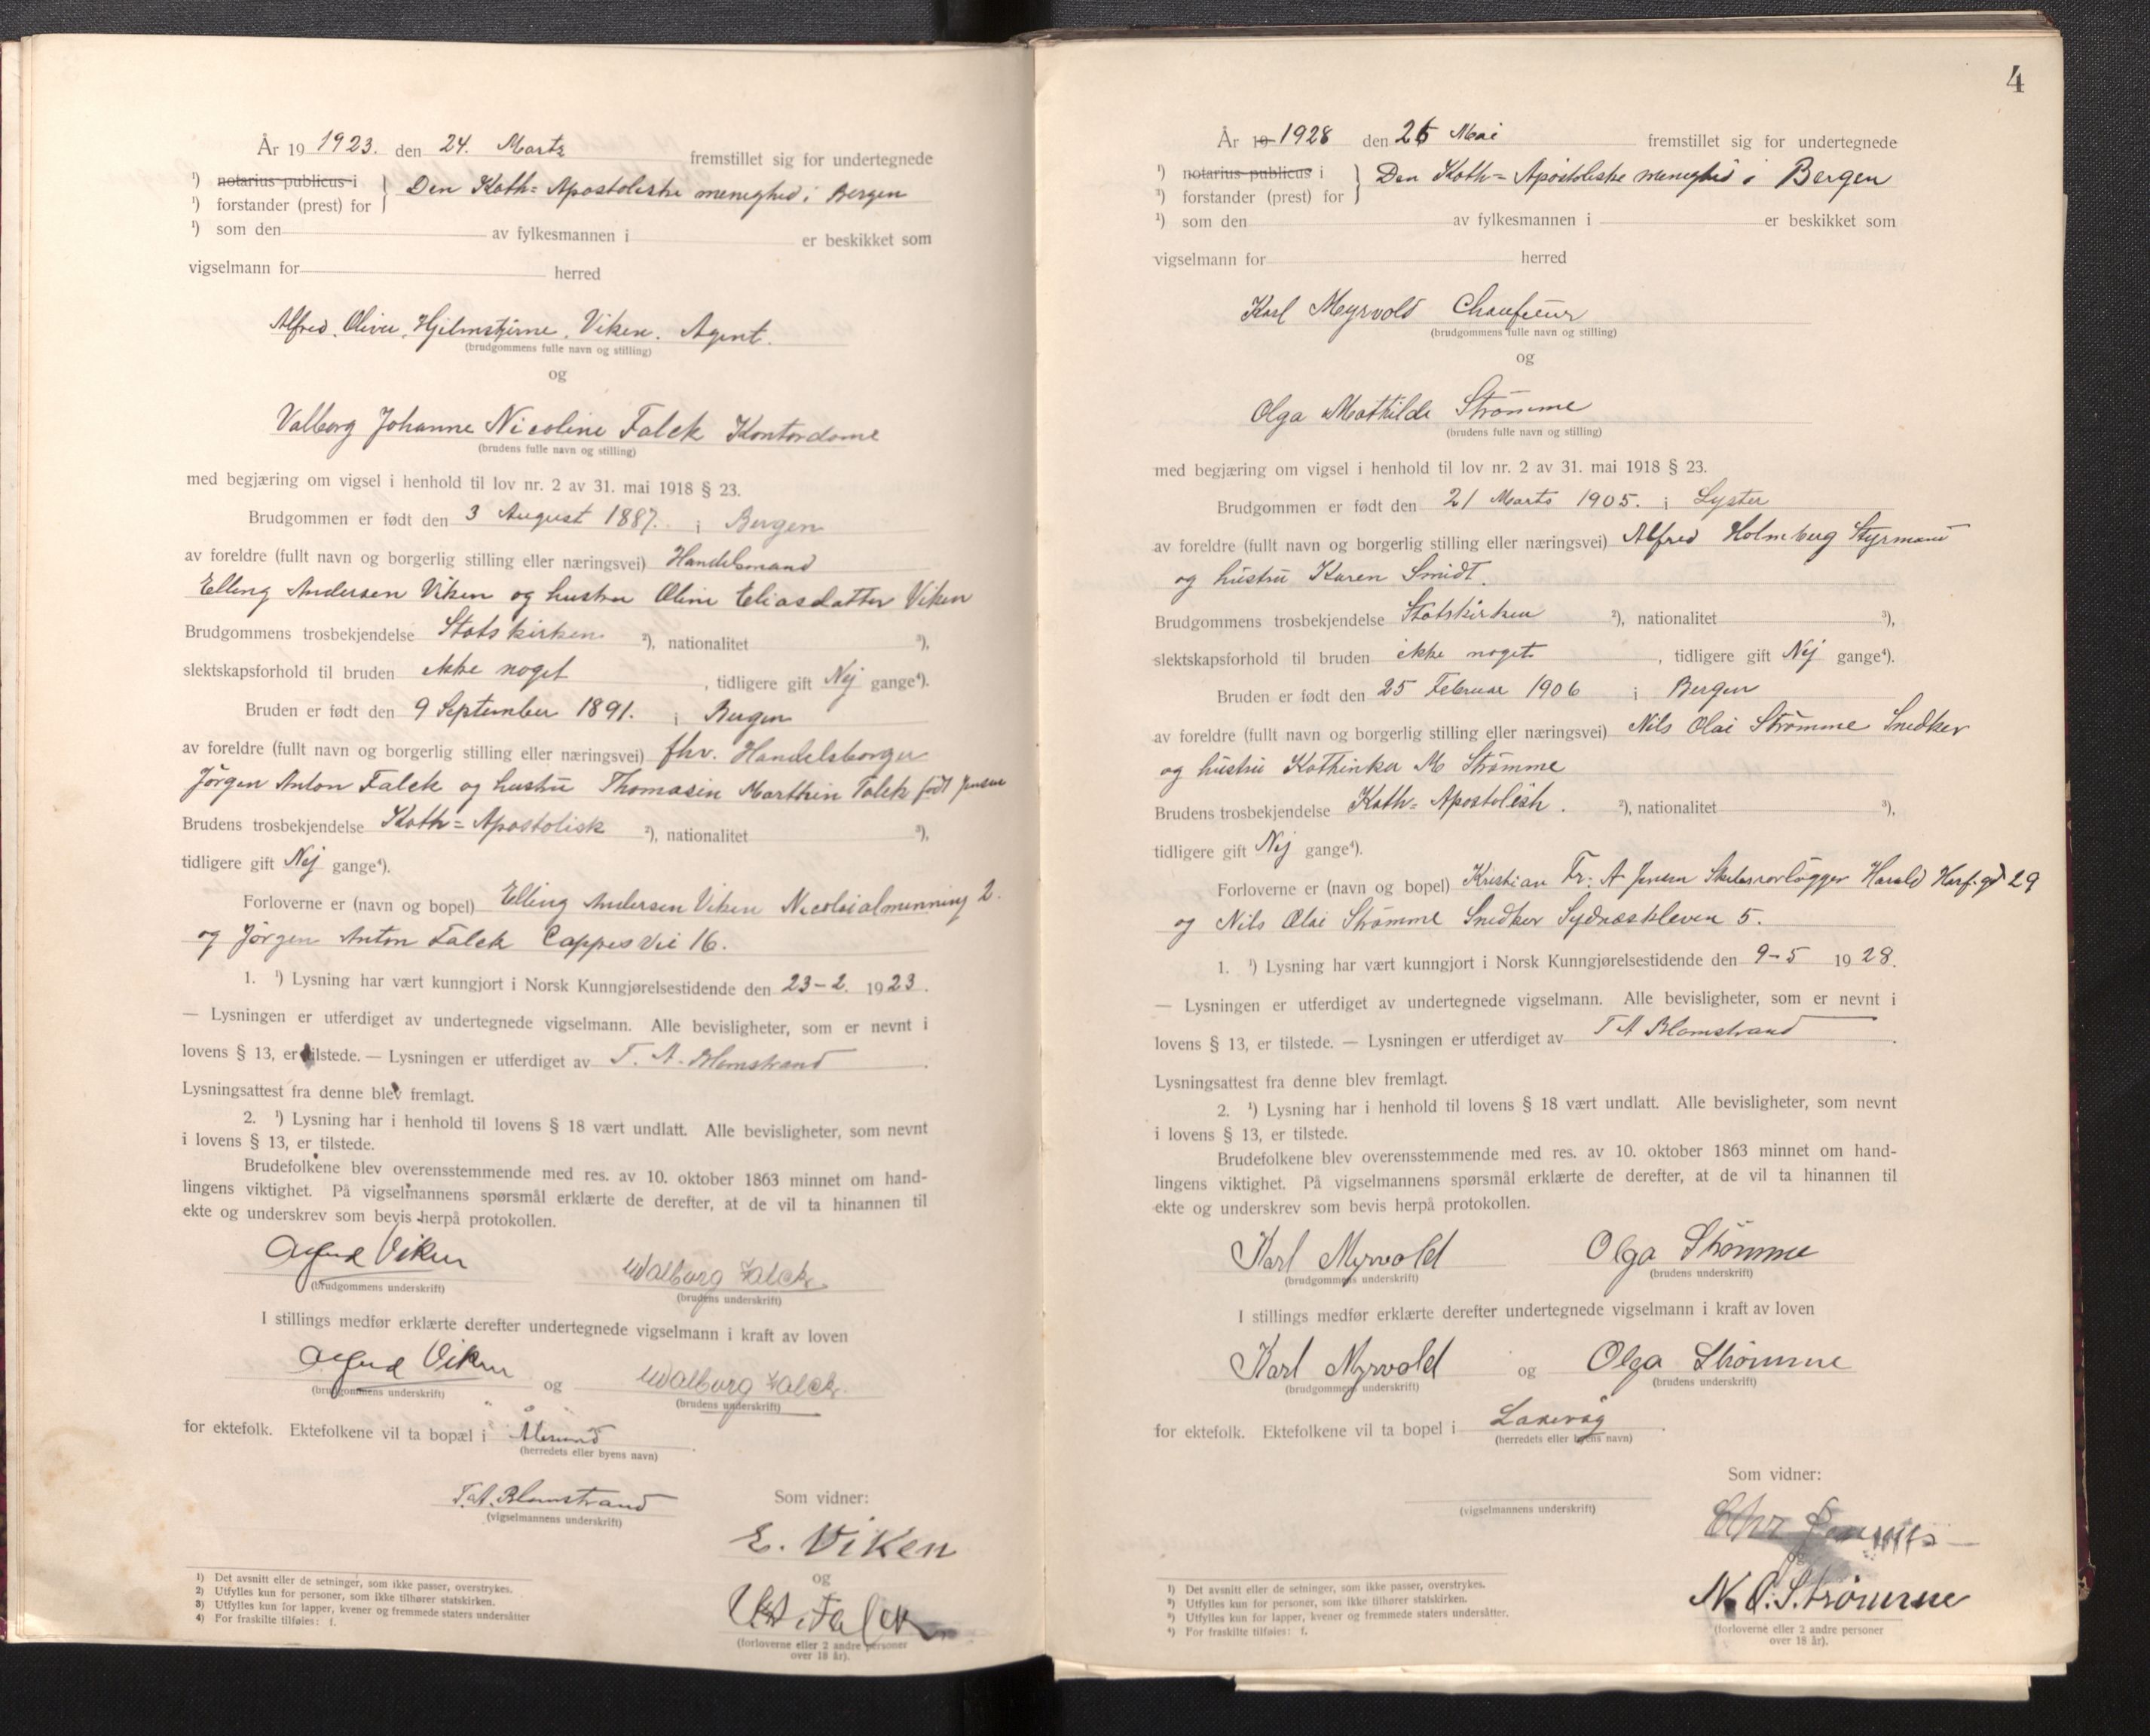 År 19 1923. den 24. Marts fremstillet sig for undertegnede
¹) notarius publicus i
¹) forstander (prest) for } Den Kath= Apostoliske menighed i Bergen
¹) som den av fylkesmannen i er beskikket som
vigselmann for herred
Alfred. Oliver. Hjelmstjerne. Viken. Agent.
(brudgommens fulle navn og stilling)
og
Valborg Johanne Nicoline Falck Kontordame
(brudens fulle navn og stilling)
med begjæring om vigsel i henhold til lov nr. 2 av 31. mai 1918 § 23.
Brudgommen er født den 3 August 1887. i Bergen
av foreldre (fullt navn og borgerlig stilling eller næringsvei) Handelsmand
Elling Andersen Viken og hustru Oline Eliasdatter Viken
Brudgommens trosbekjendelse Statskirken ²), nationalitet ³),
slektskapsforhold til bruden ikke noget , tidligere gift Nej gange⁴).
Bruden er født den 9 September 1891. i Bergen
av foreldre (fullt navn og borgerlig stilling eller næringsvei) fhv. Handelsborger
Jörgen Anton Falck og hustru Thomasin Marthin Falck født Jensen
Brudens trosbekjendelse Kath= Apostolisk ²), nationalitet ³),
tidligere gift Nej gange⁴).
Forloverne er (navn og bopel) Elling Andersen Viken Nicolaialmenning 2.
og Jörgen Anton Falck Cappes vei 16.
1. ¹) Lysning har vært kunngjort i Norsk Kunngjørelsestidende den 23-2. 1923.
— Lysningen er utferdiget av undertegnede vigselmann. Alle bevisligheter, som er nevnt i
lovens § 13, er tilstede. — Lysningen er utferdiget av T. A. Blomstrand .
Lysningsattest fra denne blev fremlagt.
2. ¹) Lysning har i henhold til lovens § 18 vært undlatt. Alle bevisligheter, som nevnt
i lovens § 13, er tilstede.
Brudefolkene blev overensstemmende med res. av 10. oktober 1863 minnet om hand-
lingens viktighet. På vigselmannens spørsmål erklærte de derefter, at de vil ta hinannen til
ekte og underskrev som bevis herpå protokollen.
Alfred Viken Walborg Falck.
(brudgommens underskrift) (brudens underskrift)
I stillings medfør erklærte derefter undertegnede vigselmann i kraft av loven
Alfred Viken og Walborg Falck.
(brudgommens underskrift) (brudens underskrift)
for ektefolk. Ektefolkene vil ta bopæl i Ålesund .
(herredets eller byens navn)
T.A. Blomstrand
(vigselmannens underskrift)
Som vidner:
E. Viken
og
Falck
(forloverne eller 2 andre personer
over 18 år).
1) Det avsnitt eller de setninger, som ikke passer, overstrykes.
2) Utfylles kun for personer, som ikke tilhører statskirken.
3) Utfylles kun for lapper, kvener og fremmede staters undersåtter
4) For fraskilte tilføies: f.
4
År 19 1928 den 26 Mai fremstillet sig for undertegnede
¹) notarius publicus i
²) forstander (prest) for } Den Kath= Apostoliske menighed i Bergen
¹) som den av fylkesmannen i er beskikket som
vigselmann for herred
Karl Meyrvold Chaufeur
(brudgommens fulle navn og stilling)
og
Olga Mathilde Strömme
(brudens fulle navn og stilling)
med begjæring om vigsel i henhold til lov nr. 2 av 31. mai 1918 § 23.
Brudgommen er født den 21 Marts 1905. i Lyster
av foreldre (fullt navn og borgerlig stilling eller næringsvei) Alfred Holmberg Styrmand
og hustru Karen Smidt.
Brudgommens trosbekjendelse Statskirken ²), nationalitet ³),
slektskapsforhold til bruden ikke noget , tidligere gift Nej gange⁴).
Bruden er født den 25 Februar 1906 i Bergen
av foreldre (fullt navn og borgerlig stilling eller næringsvei) Nils Olai Strömme Snedker
og hustru Kathinka M Strömme
Brudens trosbekjendelse Kath= Apostolish. ²), nationalitet ³),
tidligere gift Nej gange⁴).
Forloverne er (navn og bopel) Kristian Fr. A Jensen Harald Harf.gd 29
og Nils Olai Strömme Snedker Sydnæskleven 5.
1. ¹) Lysning har vært kunngjort i Norsk Kunngjørelsestidende den 9-5 1928.
— Lysningen er utferdiget av undertegnede vigselmann. Alle bevisligheter, som er nevnt i
lovens § 13, er tilstede. — Lysningen er utferdiget av T A Blomstrand .
Lysningsattest fra denne blev fremlagt.
2. ¹) Lysning har i henhold til lovens § 18 vært undlatt. Alle bevisligheter, som nevnt
i lovens § 13, er tilstede.
Brudefolkene blev overensstemmende med res. av 10. oktober 1863 minnet om hand-
lingens viktighet. På vigselmannens spørsmål erklærte de derefter, at de vil ta hinannen til
ekte og underskrev som bevis herpå protokollen.
Karl Myrvold Olga Strømme
(brudgommens underskrift) (brudens underskrift)
I stillings medfør erklærte derefter undertegnede vigselmann i kraft av loven
Karl Myrvold og Olga Strømme
(brudgommens underskrift) (brudens underskrift)
for ektefolk. Ektefolkene vil ta bopel i Laxevåg .
(herredets eller byens navn)
Som vidner:
(vigselmannens underskrift)
Chr
og
N. O. Strømme
(forloverne eller 2 andre personer
over 18 år).
¹) Det avsnitt eller de setninger, som ikke passer, overstrykes.
²) Utfylles kun for personer, som ikke tilhører statskirken.
³) Utfylles kun for lapper, kvener og fremmede staters undersåtter.
⁴) For fraskilte tilføies: f.